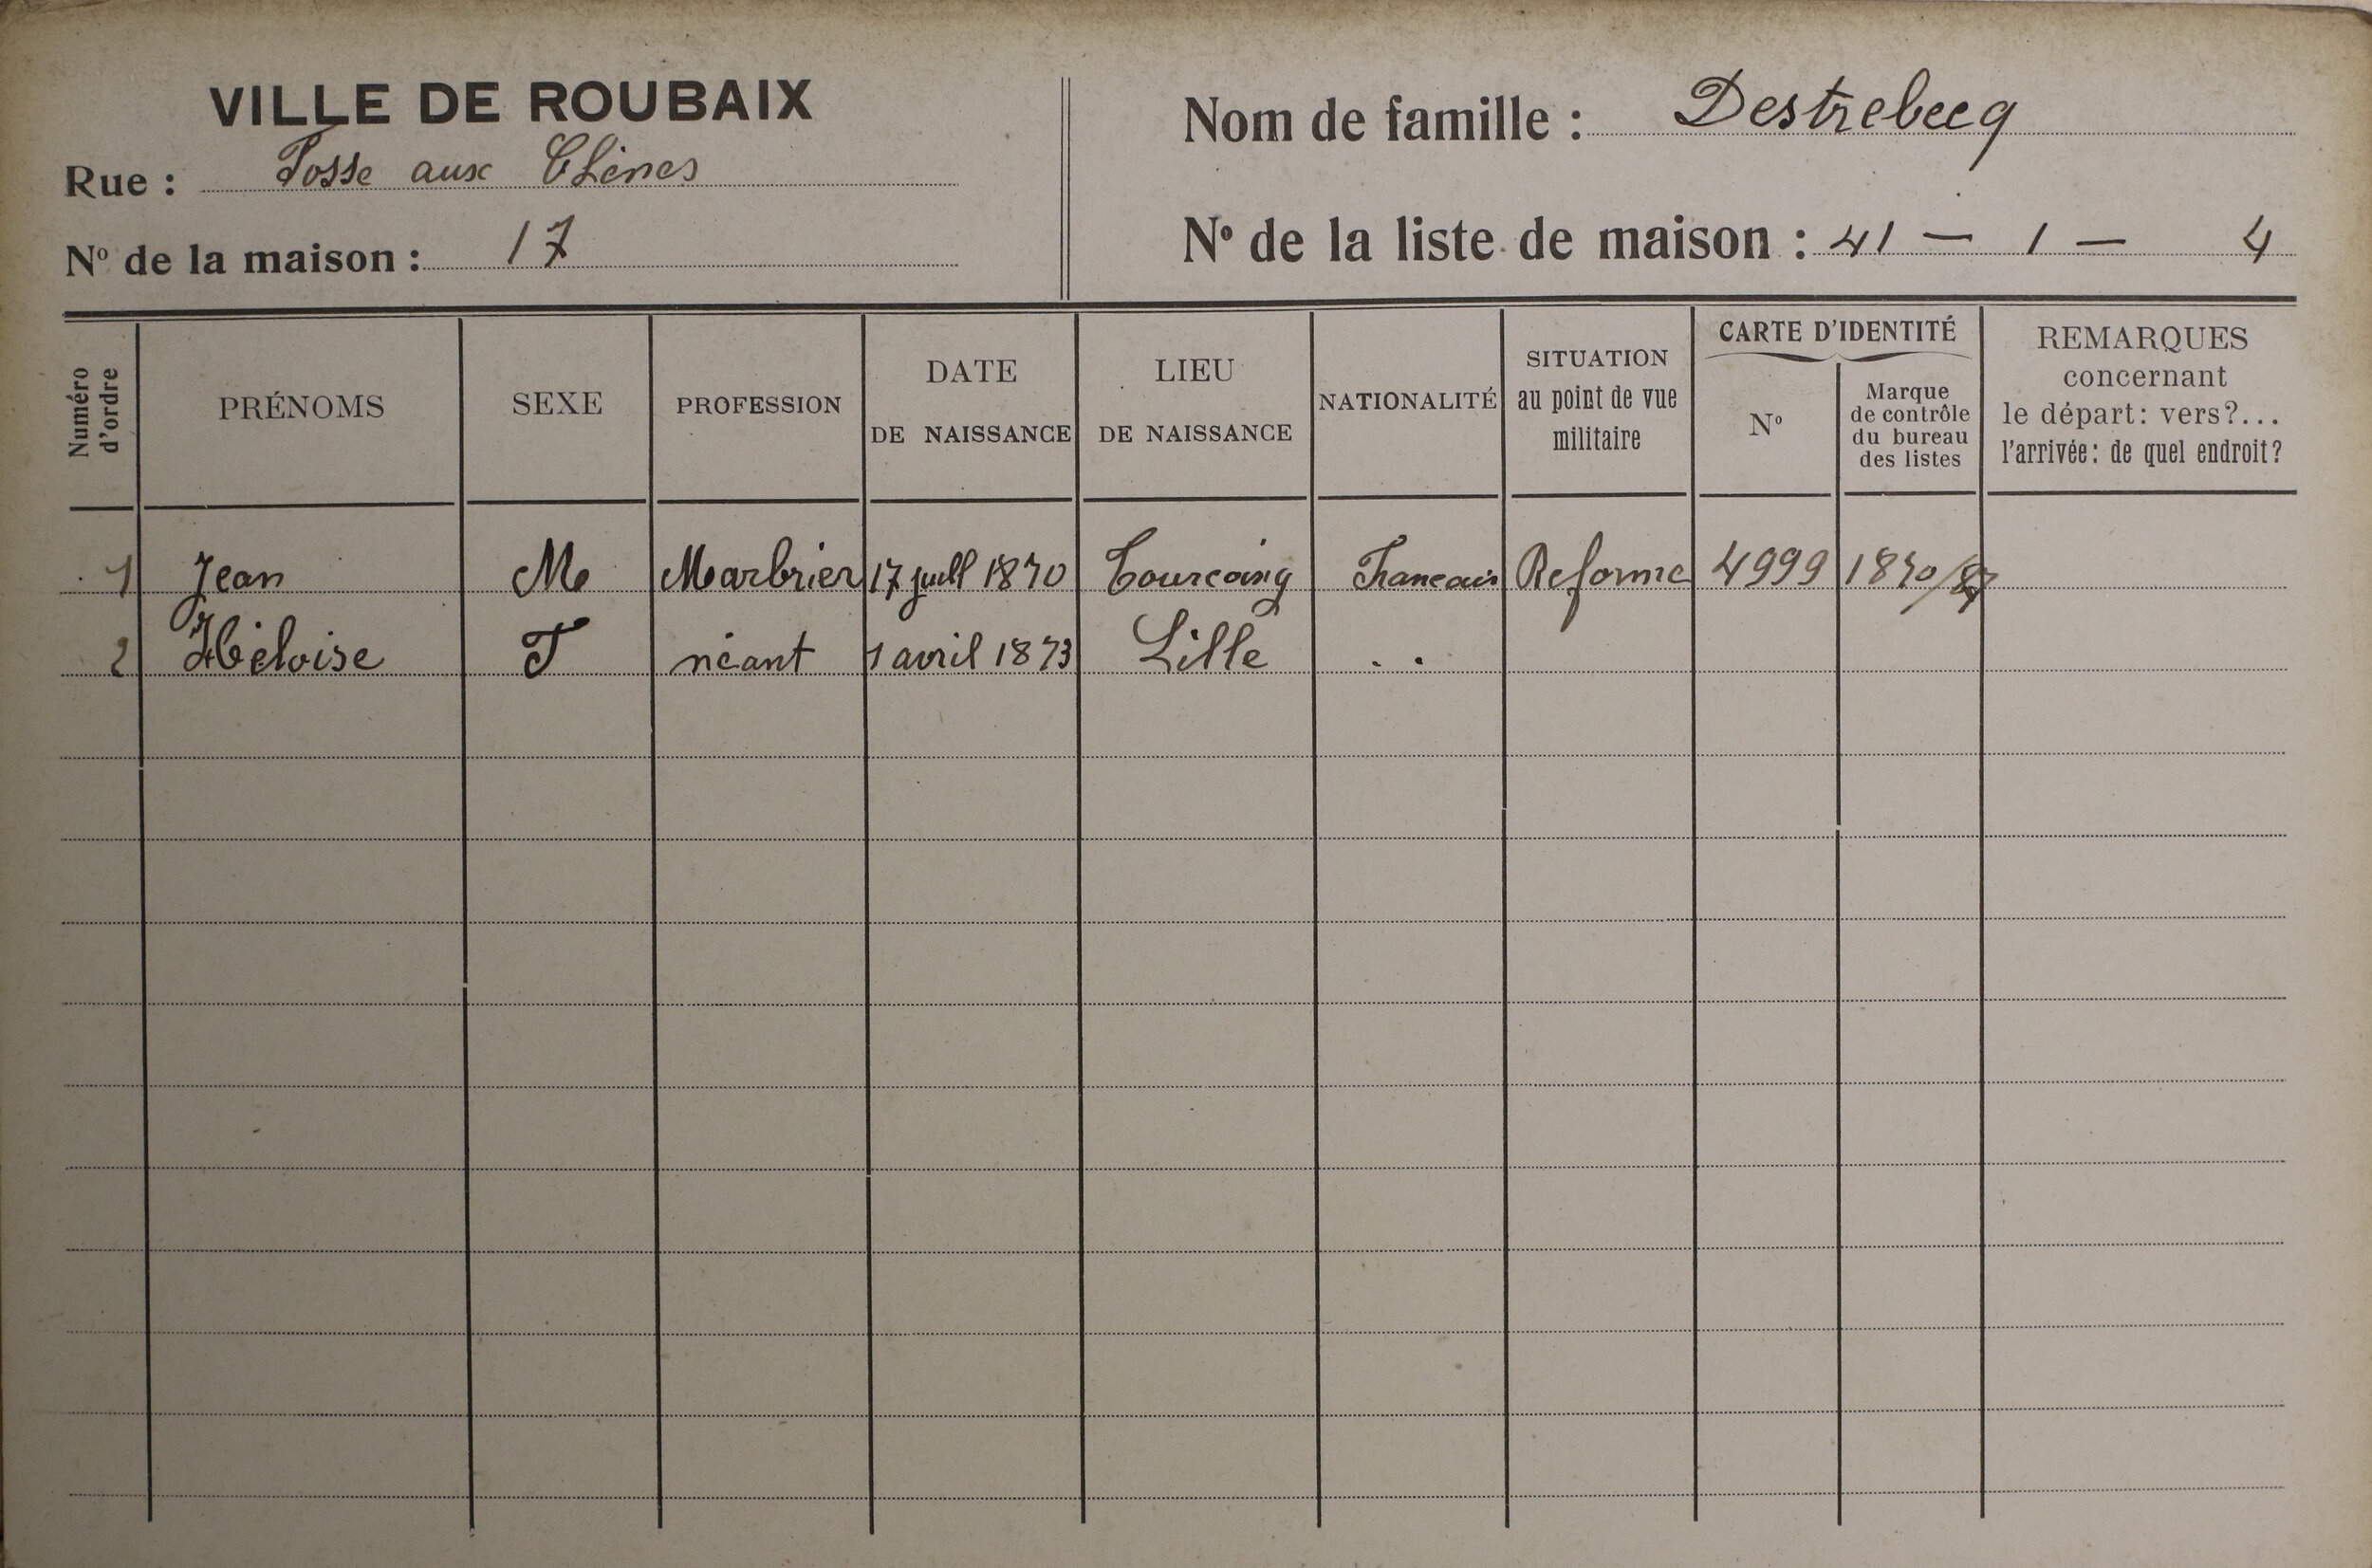 VILLE DE ROUBAIX
Rue : Fosse aux Chênes
Nº de la maison : 17
Nom de famille : Destrebecq
Nº de la liste de maison : 41 — 1 — 4
Numéro d'ordre
PRÉNOMS
SEXE
PROFESSION
DATE
DE NAISSANCE
LIEU
DE NAISSANCE
NATIONALITÉ
SITUATION
au point de vue
militaire
CARTE D'IDENTITÉ
Nº
Marque
de contrôle
du bureau
des listes
REMARQUES
concernant
le départ: vers?...
l'arrivée: de quel endroit?
1 Jean M Marbrier 17 juill 1870 Tourcoing Francais Reforme 4999 1870/
2 Héloise F néant 1 avril 1873 Lille . .